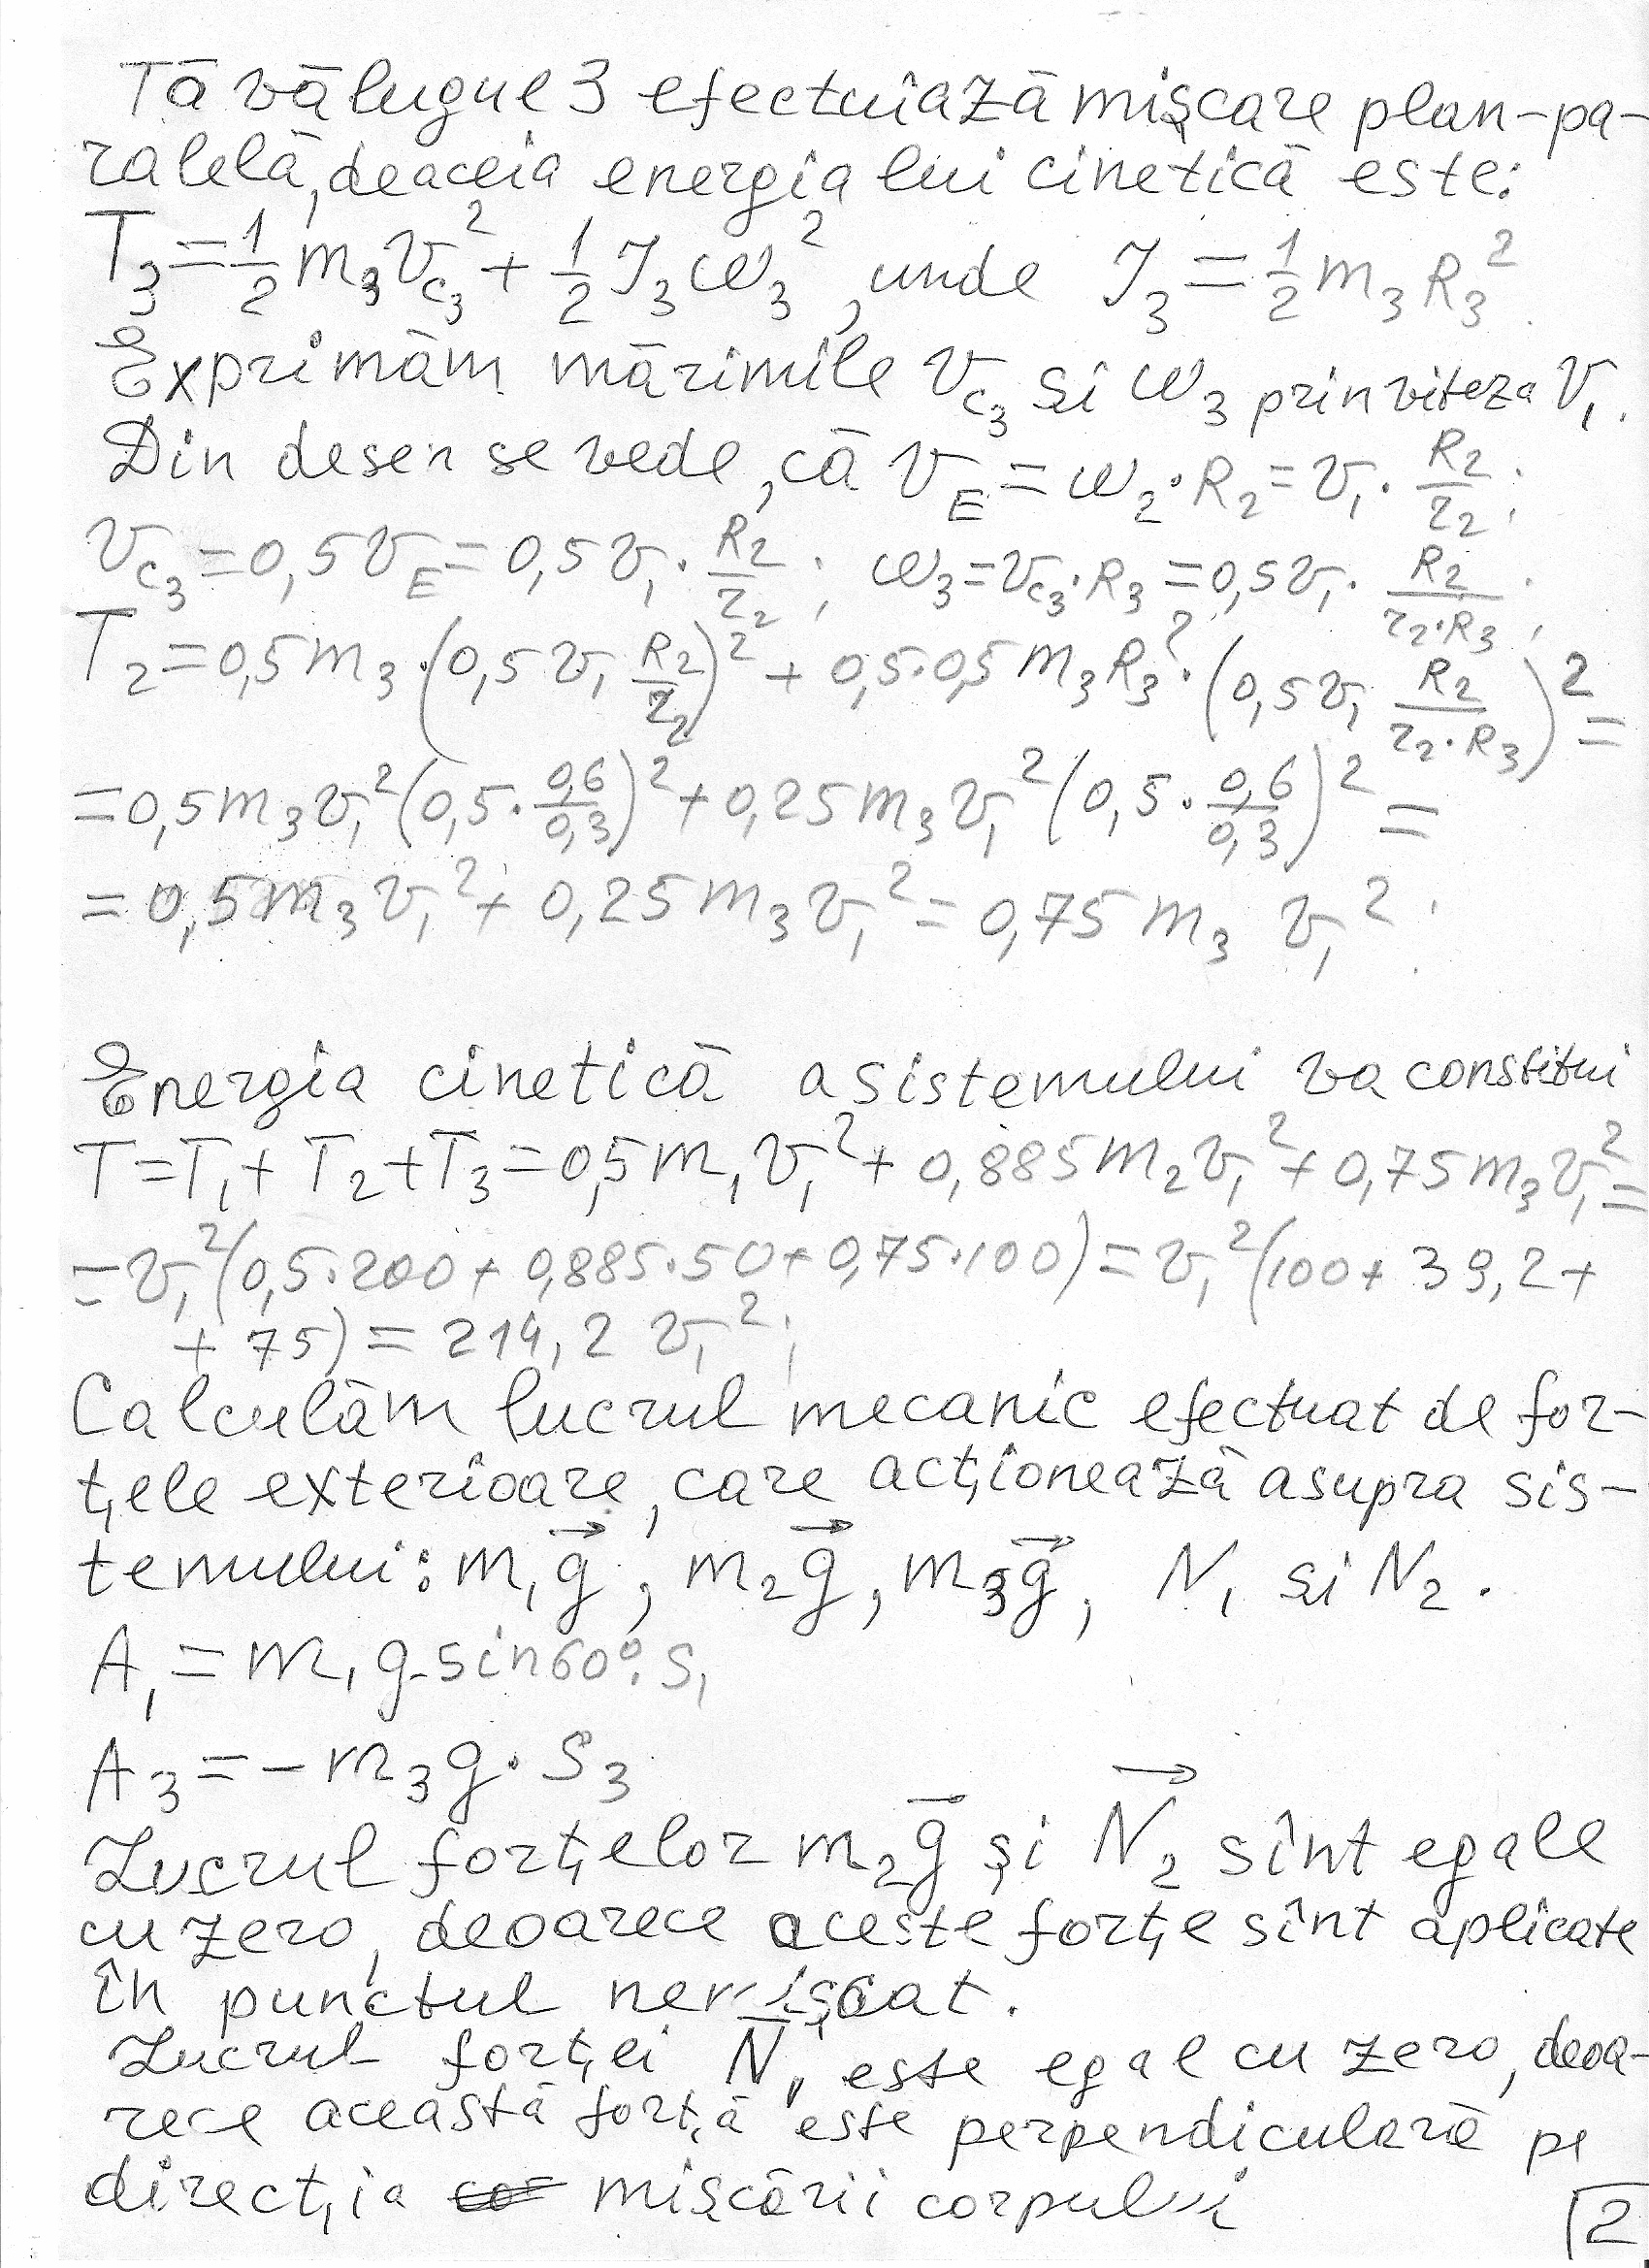 Tăvălugul 3 efectuiază mișcare plan-pa-
ralelă, deaceia energia lui cinetică este:
T₃ = 1/2 m₃ v_c₃² + 1/2 J₃ ω₃², unde J₃ = 1/2 m₃ R₃².
Exprimăm mărimile v_c₃ si ω₃ prin viteza v₁.
Din desen se vede, că v_E = ω₂·R₂ = v₁· R₂/r₂;
v_c₃ = 0,5 v_E = 0,5 v₁· R₂/r₂; ω₃ = v_c₃·R₃ = 0,5 v₁· R₂/(r₂·R₃);
T₂ = 0,5 m₃·(0,5 v₁ R₂/r₂)² + 0,5·0,5 m₃ R₃²·(0,5 v₁ R₂/(r₂·R₃))² =
= 0,5 m₃ v₁² (0,5· 0,6/0,3)² + 0,25 m₃ v₁² (0,5· 0,6/0,3)² =
= 0,5 m₃ v₁² + 0,25 m₃ v₁² = 0,75 m₃ v₁².
Energia cinetică a sistemului va constitui
T = T₁ + T₂ + T₃ = 0,5 m₁ v₁² + 0,885 m₂ v₁² + 0,75 m₃ v₁² =
= v₁² (0,5·200 + 0,885·50 + 0,75·100) = v₁² (100 + 39,2 +
+ 75) = 214,2 v₁²;
Calculăm lucrul mecanic efectuat de for-
țele exterioare, care acționează asupra sis-
temului: m₁g⃗, m₂g⃗, m₃g⃗, N₁ si N₂.
A₁ = m₁g·sin60°·S₁
A₃ = -m₃g·S₃
Lucrul forțelor m₂g⃗ și N⃗₂ sînt egale
cu zero, deoarece aceste forțe sînt aplicate
în punctul nemișcat.
Lucrul forței N̅₁ este egal cu zero, deoa-
rece această forță este perpendiculară pe
direcția mișcării corpului
2